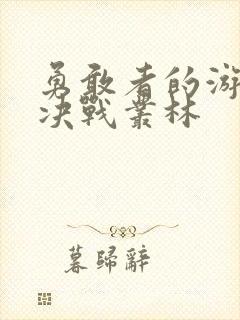 勇敢者的游
决戰叢林
暮歸辭